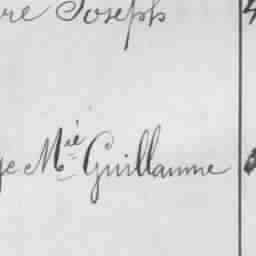 re Joseph
ge Mie Guillaume